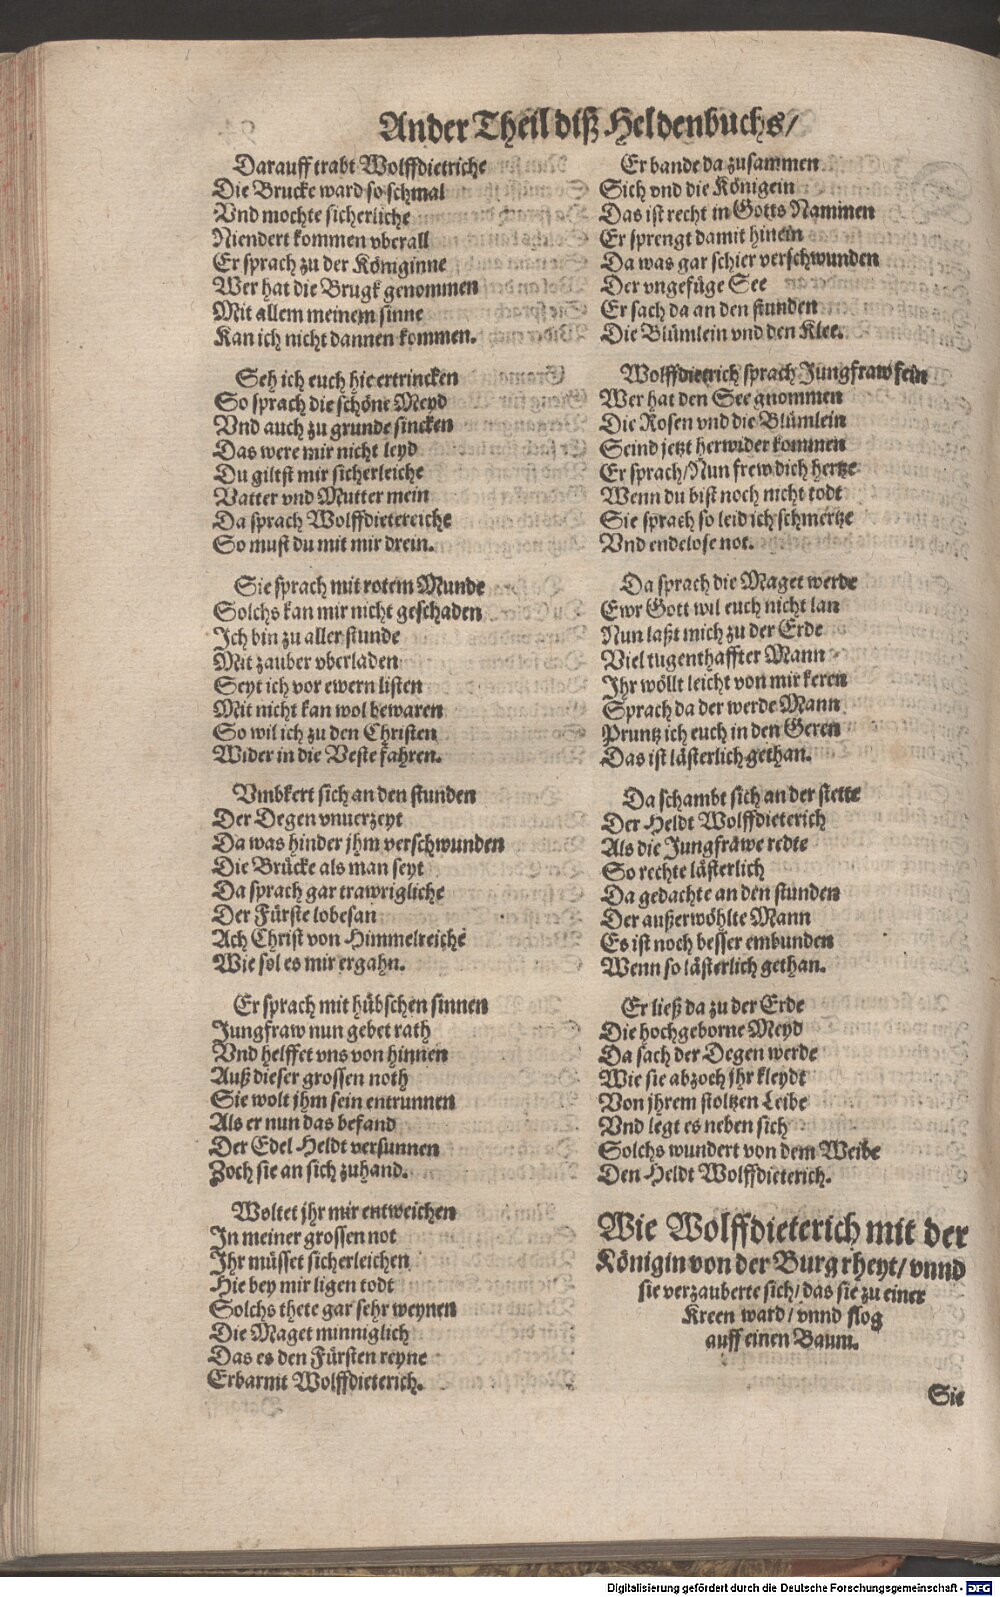 Ander Theil diß Heldenbuchs/
Darauff trabt Wolffdietriche
Die Brucke ward so schmal
Vnd mochte sicherliche
Niendert kommen vberall
Er sprach zu der Königinne
Wer hat die Brugk genommen
Mit allem meinem sinne
Kan ich nicht dannen kommen.
Seh ich euch hie ertrincken
So sprach die schöne Meyd
Vnd auch zu grunde sincken
Das were mir nicht leyd
Du giltst mir sicherleiche
Vatter vnd Mutter mein
Da sprach Wolffdietereiche
So must du mit mir drein.
Sie sprach mit rotem Munde
Solchs kan mir nicht geschaden
Ich bin zu aller stunde
Mit zauber vberladen
Seyt ich vor ewern listen
Mit nicht kan wol bewaren
So wil ich zu den Christen
Wider in die Veste fahren.
Vmbkert sich an den stunden
Der Degen vnuerzeyt
Da was hinder jhm verschwunden
Die Brücke als man seyt
Da sprach gar trawrigliche
Der Fürste lobesan
Ach Christ von Himmelreiche
Wie sol es mir ergahn.
Er sprach mit hübschen sinnen
Jungfraw nun gebet rath
Vnd helffet vns von hinnen
Auß dieser grossen noth
Sie wolt jhm sein entrunnen
Als er nun das befand
Der Edel Heldt versunnen
Zoch sie an sich zuhand.
Woltet jhr mir entweichen
In meiner grossen not
Ihr müsset sicherleichen
Hie bey mir ligen todt
Solchs thete gar sehr weynen
Die Maget minniglich
Das es den Fürsten reyne
Erbarmt Wolffdieterich.
Er bande da zusammen
Sich vnd die Königein
Das ist recht in Gotts Nammen
Er sprengt damit hinein
Da was gar schier verschwunden
Der vngefüge See
Er sach da an den stunden
Die Blümlein vnd den Klee.
Wolffdietrich sprach Jungfraw fein
Wer hat den See gnommen
Die Rosen vnd die Blümlein
Seind jetzt herwider kommen
Er sprach/Nun frew dich hertze
Wenn du bist noch nicht todt
Sie sprach so leid ich schmertze
Vnd endelose not.
Da sprach die Maget werde
Ewr Gott wil euch nicht lan
Nun laßt mich zu der Erde
Viel tugenthaffter Mann
Ihr wöllt leicht von mir keren
Sprach da der werde Mann
Pruntz ich euch in den Geren
Das ist lästerlich gethan.
Da schambt sich an der stette
Der Heldt Wolffdieterich
Als die Jungfräwe redte
So rechte lästerlich
Da gedachte an den stunden
Der außerwöhlte Mann
Es ist noch besser embunden
Wenn so lästerlich gethan.
Er ließ da zu der Erde
Die hochgeborne Meyd
Da sach der Degen werde
Wie sie abzoch jhr kleydt
Von jhrem stoltzen Leibe
Vnd legt es neben sich
Solchs wundert von dem Weibe
Den Heldt Wolffdieterich.
Wie Wolffdieterich mit der
Königin von der Burg rheyt/ vnnd
sie verzauberte sich/ das sie zu einer
Kreen ward/ vnnd flog
auff einen Baum.
Sie
Digitalisierung gefördert durch die Deutsche Forschungsgemeinschaft - DFG